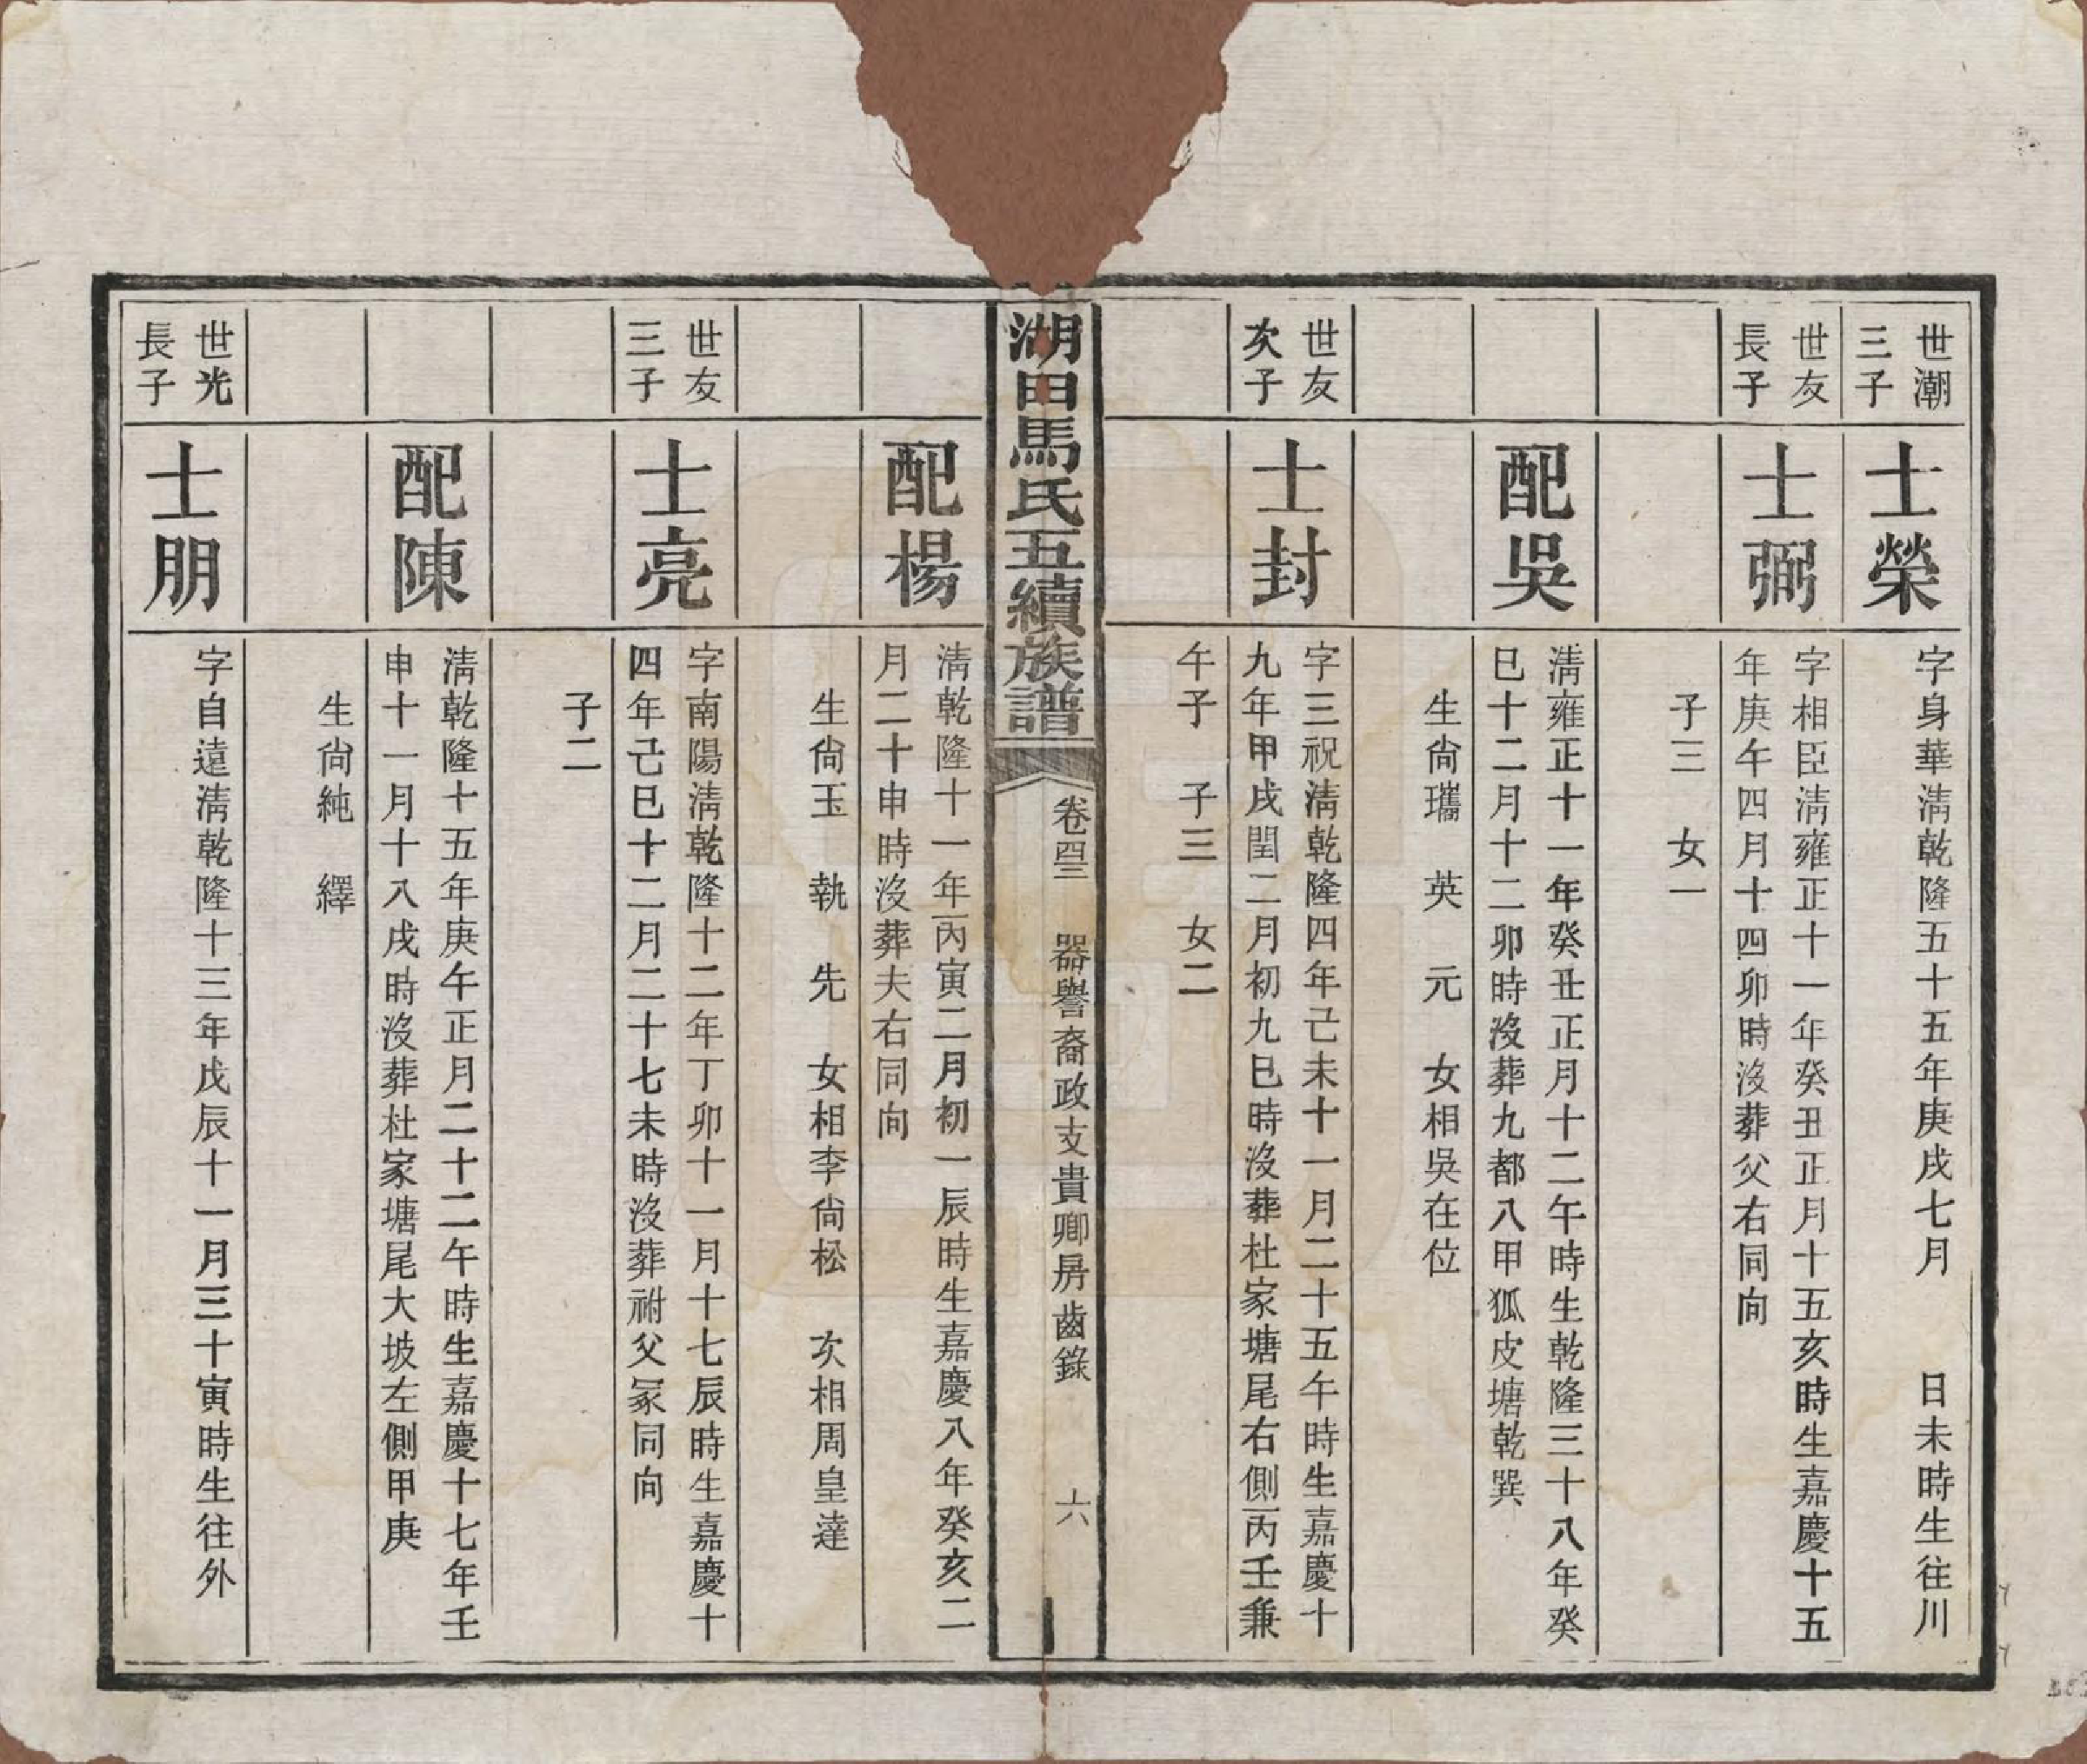 世潮
三子
士榮
字身華淸乾隆五十五年庚戌七月　　日未時生往川
世友
長子
士弼
字相臣淸雍正十一年癸丑正月十五亥時生嘉慶十五
年庚午四月十四卯時沒葬父右同向
子三　女一
配吳
淸雍正十一年癸丑正月十二午時生乾隆三十八年癸
巳十二月十二卯時沒葬九都八甲狐皮塘乾巽
生尙瓗　英　元　女相吳在位
世友
次子
士封
字三祝淸乾隆四年己未十一月二十五午時生嘉慶十
九年甲戌閏二月初九巳時沒葬杜家塘尾右側丙壬兼
午子　子三　女二
湖田馬氏五續族譜
卷四三　器譽裔政支貴卿房齒錄　六
配楊
淸乾隆十一年丙寅二月初一辰時生嘉慶八年癸亥二
月二十申時沒葬夫右同向
生尙玉　執　先　女相李尙松　次相周皇達
世友
三子
士亮
字南陽淸乾隆十二年丁卯十一月十七辰時生嘉慶十
四年己巳十二月二十七未時沒葬祔父冢同向
子二
配陳
淸乾隆十五年庚午正月二十二午時生嘉慶十七年壬
申十一月十八戌時沒葬杜家塘尾大坡左側甲庚
生尙純　繹
世光
長子
士朋
字自遠淸乾隆十三年戊辰十一月三十寅時生往外